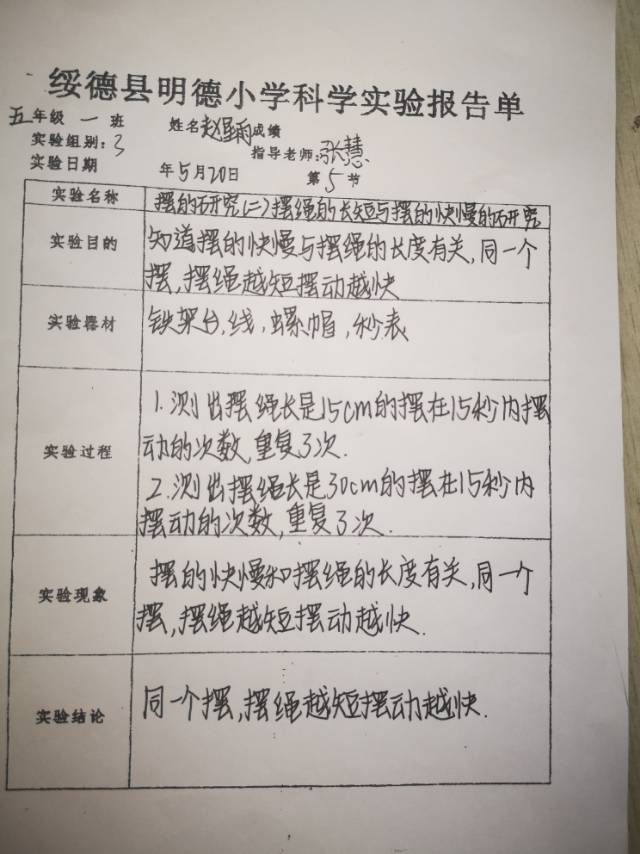 绥德县明德小学科学实验报告单
五年级 一 班 姓名 赵星雨 成绩
实验组别:3 指导老师:张慧
实验日期 年5月20日 第5节
实验名称 摆的研究(二)摆绳的长短与摆的快慢的研究
实验目的 知道摆的快慢与摆绳的长度有关,同一个
摆,摆绳越短摆动越快
实验器材 铁架台,线,螺帽,秒表
实验过程 1.测出摆绳长是15cm的摆在15秒内摆
动的次数,重复3次.
2.测出摆绳长是30cm的摆在15秒内
摆动的次数,重复3次.
实验现象 摆的快慢和摆绳的长度有关,同一个
摆,摆绳越短摆动越快.
实验结论 同一个摆,摆绳越短摆动越快.